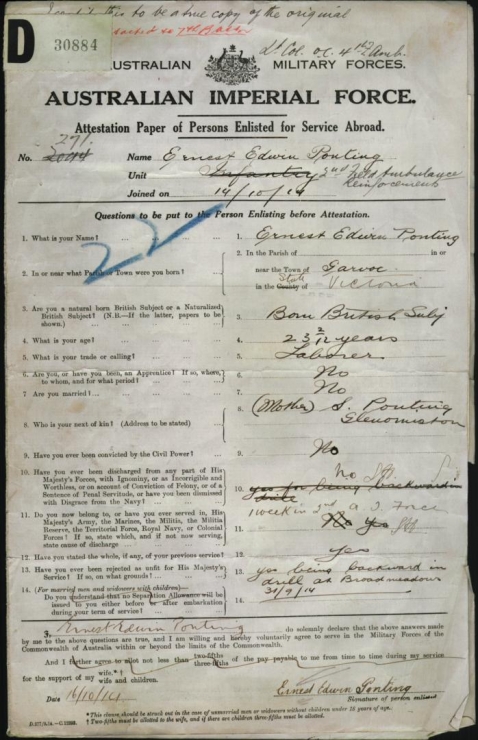 this to be a true copy of the original
D
30884
Lt Col. O.C. 4th Amb.
AUSTRALIAN MILITARY FORCES.
AUSTRALIAN IMPERIAL FORCE.
Attestation Paper of Persons Enlisted for Service Abroad.
271.
No. Name Ernest Edwin Ponting
Unit Infantry 2nd Field Ambulance
Reinforcements
Joined on 14/10/14
Questions to be put to the Person Enlisting before Attestation.
22
1. What is your Name? ... ... ... 1. Ernest Edwin Ponting
2. In or near what Parish or Town were you born? ... 2. In the Parish of in or
near the Town of Garvoc
in the County of State Victoria
3. Are you a natural born British Subject or a Naturalized
British Subject? (N.B.—If the latter, papers to be
shown.) ... ... 3. Born British Subj
4. What is your age? ... ... ... 4. 23 2/12 years
5. What is your trade or calling? ... ... 5. Laborer
6. Are you, or have you been, an Apprentice? If so, where,
to whom, and for what period? ... ... 6. No
7. Are you married? ... ... ... 7. No
8. Who is your next of kin? (Address to be stated) ... 8. (Mother) S. Ponting
Glenormiston
9. Have you ever been convicted by the Civil Power? ... 9. No
10. Have you ever been discharged from any part of His
Majesty's Forces, with Ignominy, or as Incorrigible and
Worthless, or on account of Conviction of Felony, or of a
Sentence of Penal Servitude, or have you been dismissed
with Disgrace from the Navy? ... 10. No
yes for being backward in
drill
11. Do you now belong to, or have you ever served in, His
Majesty's Army, the Marines, the Militia, the Militia
Reserve, the Territorial Force, Royal Navy, or Colonial
Forces? If so, state which, and if not now serving,
state cause of discharge ... 11. 1 week in A. I. Force
No Yes
12. Have you stated the whole, if any, of your previous service? 12. yes
13. Have you ever been rejected as unfit for His Majesty's
Service? If so, on what grounds? ... 13. yes being backward in
drill at Broadmeadows
31/9/14
14. (For married men and widowers with children)—
Do you understand that no Separation Allowance will be
issued to you either before or after embarkation
during your term of service? ... 14.
I, Ernest Edwin Ponting do solemnly declare that the above answers made
by me to the above questions are true, and I am willing and hereby voluntarily agree to serve in the Military Forces of the
Commonwealth of Australia within or beyond the limits of the Commonwealth.
And I further agree to allot not less than two-fifths three-fifths of the pay payable to me from time to time during my service
for the support of my wife.*† wife and children.
Date 16/10/14 Ernest Edwin Ponting
Signature of person enlisted
*This clause should be struck out in the case of unmarried men or widowers without children under 18 years of age.
†Two-fifths must be allotted to the wife, and if there are children three-fifths must be allotted.